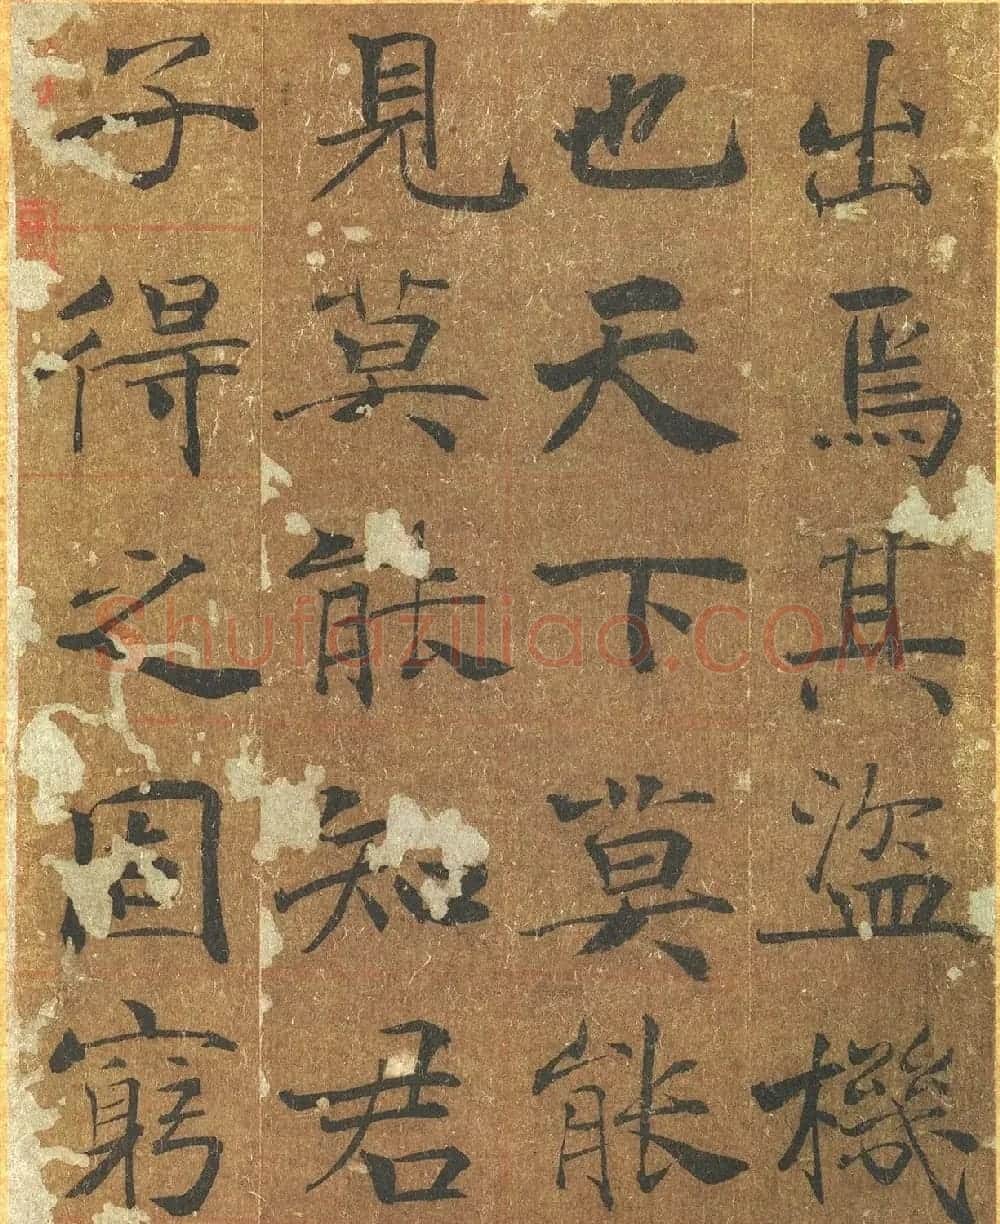 出焉其盜機
也天下莫能
見莫能知君
子得之固窮
Shufaziliao.COM